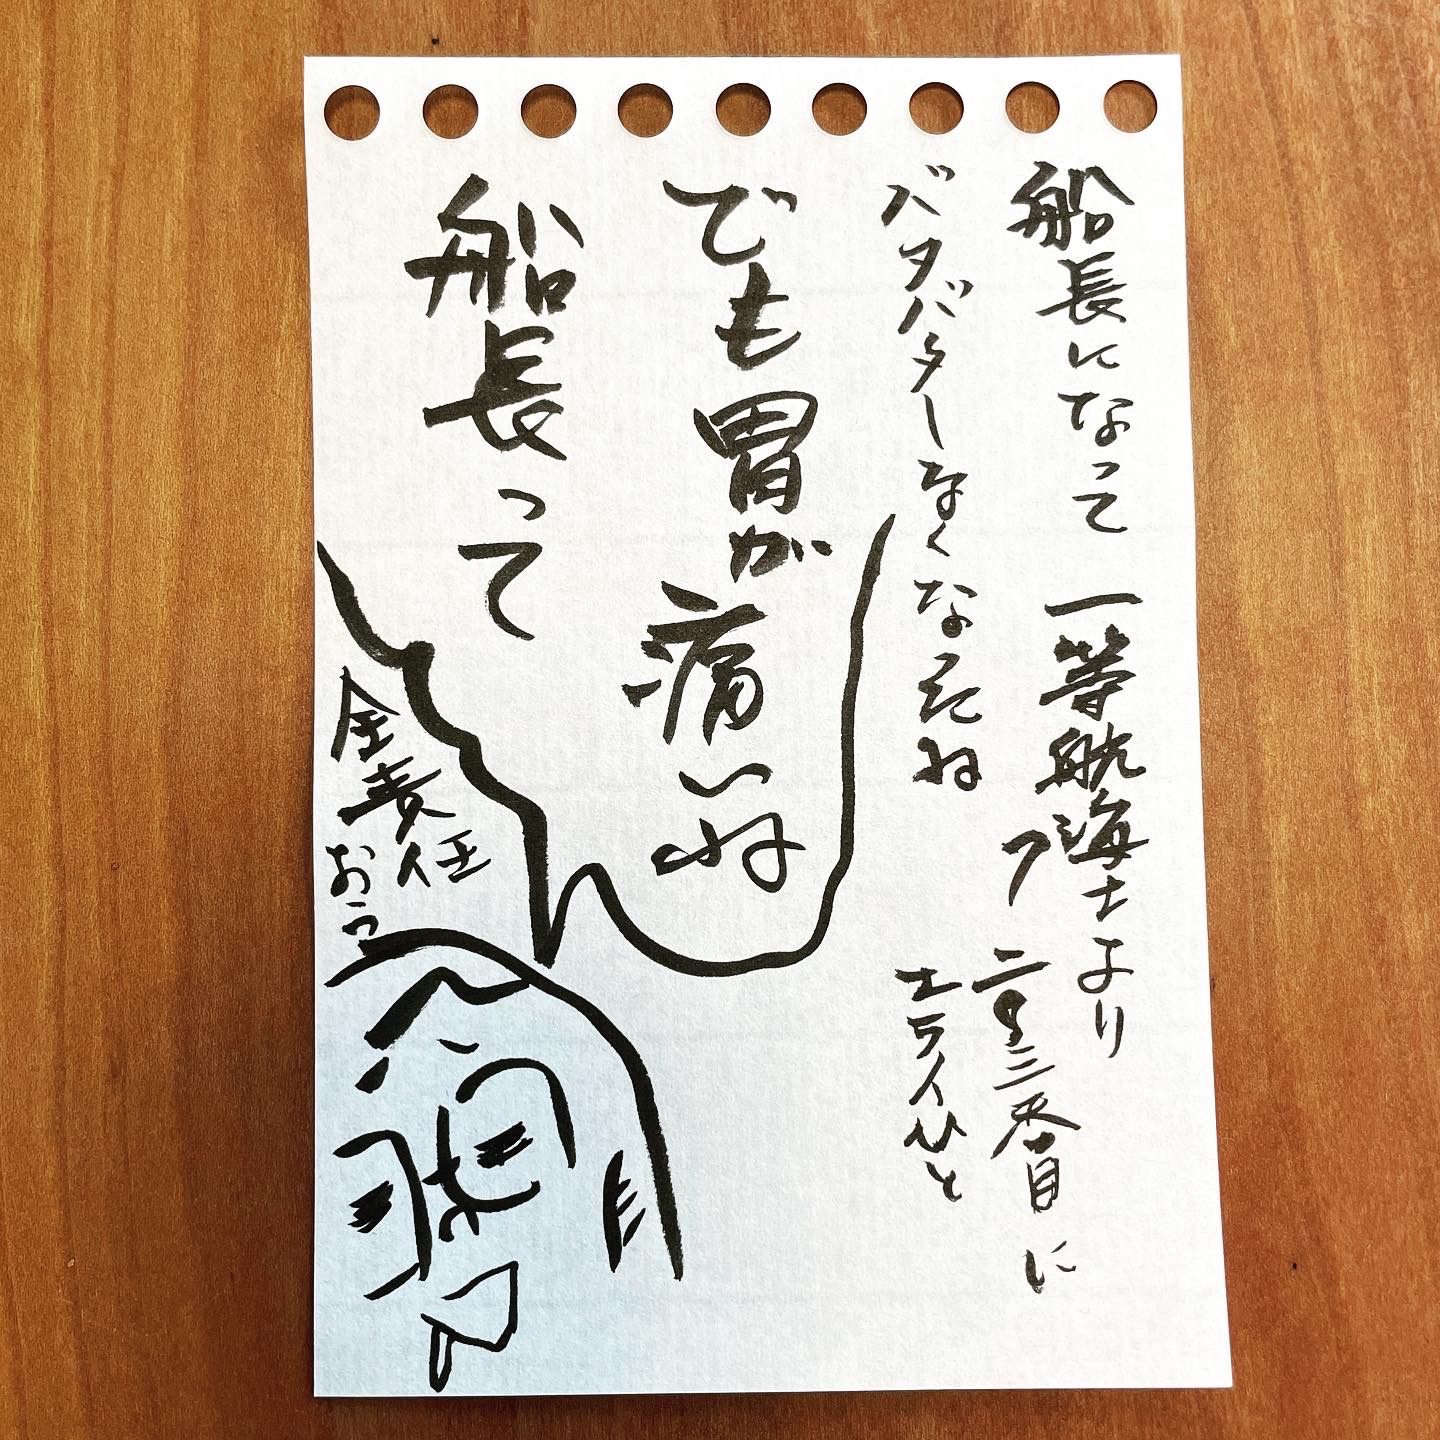 船長になって 一等航海士より
バタバタしなくなたね
三番目に
エライひと
でも胃が痛いね
船長って
全責任
おう